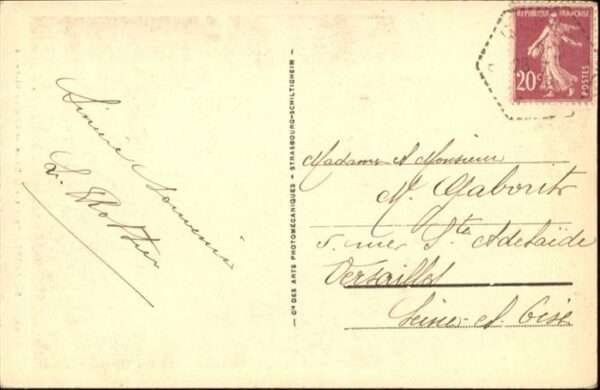 Sincère Souvenir
RÉPUBLIQUE FRANÇAISE
20c
POSTES
Cie DES ARTS PHOTOMÉCANIQUES - STRASBOURG-SCHILTIGHEIM
Madame et Monsieur
N. Gaborit
5, rue Ste Adelaïde
Versailles
Seine-et-Oise